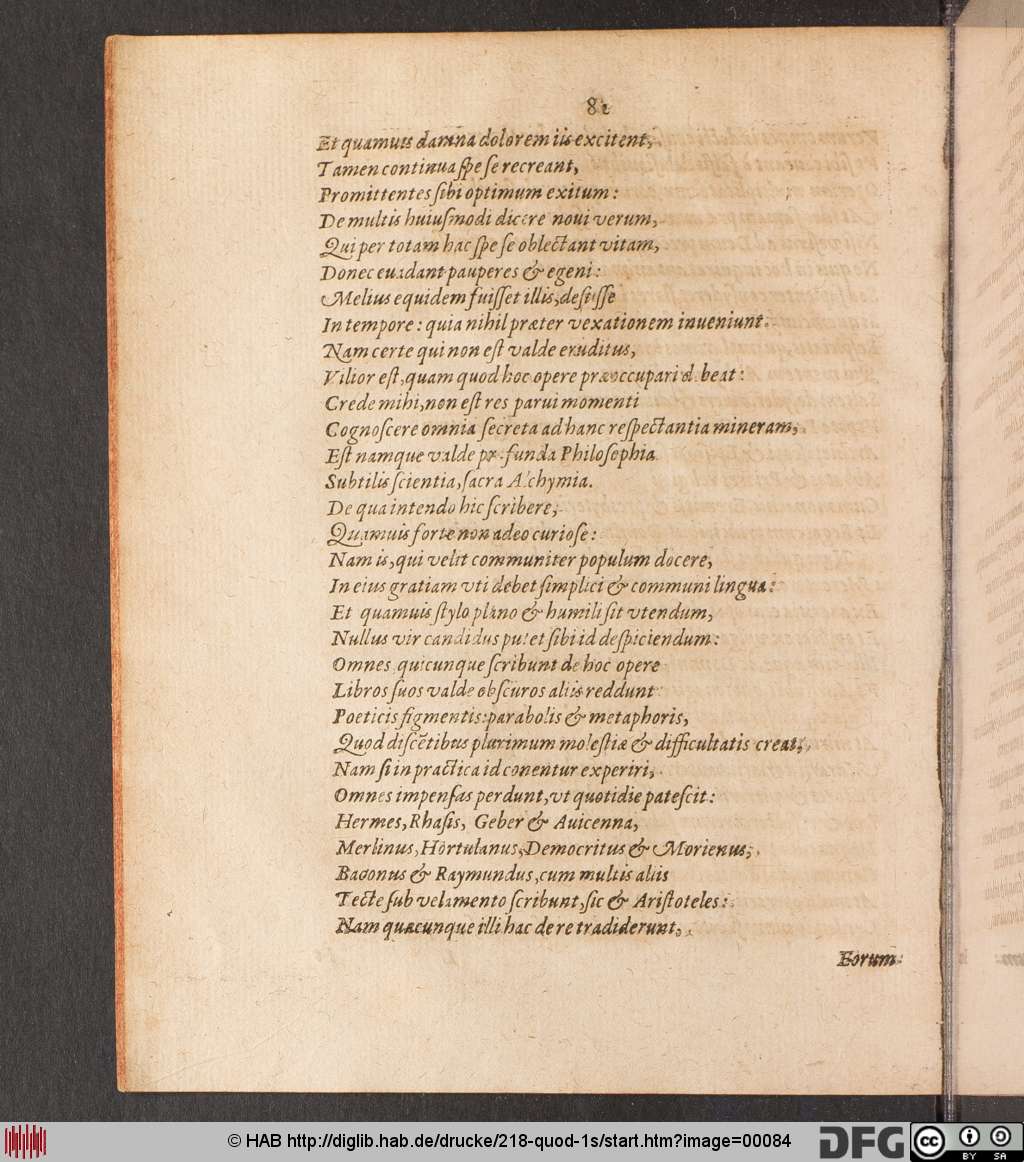 82
Et quamuis damna dolorem iis excitent,
Tamen continua ſpe ſe recreant,
Promittentes ſibi optimum exitum:
De multis huiuſmodi dicere noui verum,
Qui per totam hac ſpe ſe oblectant vitam,
Donec euadant pauperes & egeni:
Melius equidem fuiſſet illis, deſtiſſe
In tempore: quia nihil præter vexationem inueniunt.
Nam certe qui non eſt valde eruditus,
Vilior eſt, quam quod hoc opere præoccupari debeat:
Crede mihi, non eſt res parui momenti
Cognoſcere omnia ſecreta ad hanc reſpectantia mineram,
Eſt namque valde profunda Philoſophia
Subtilis ſcientia, ſacra Alchymia.
De qua intendo hic ſcribere,
Quamuis forte non adeo curioſe:
Nam is, qui velit communiter populum docere,
In eius gratiam vti debet ſimplici & communi lingua:
Et quamuis ſtylo plano & humili ſit vtendum,
Nullus vir candidus putet ſibi id deſpiciendum:
Omnes quicunque ſcribunt de hoc opere
Libros ſuos valde obſcuros aliis reddunt
Poeticis figmentis: parabolis & metaphoris,
Quod diſcẽtibus plurimum moleſtiæ & difficultatis creat,
Nam ſi in practica id conentur experiri,
Omnes impenſas perdunt, vt quotidie pateſcit:
Hermes, Rhaſis, Geber & Auicenna,
Merlinus, Hortulanus, Democritus & Morienus,
Baconus & Raymundus, cum multis aliis
Tecte ſub velamento ſcribunt, ſic & Ariſtoteles:
Nam quæcunque illi hac de re tradiderunt,
Eorum
© HAB http://diglib.hab.de/drucke/218-quod-1s/start.htm?image=00084
DFG
cc BY SA